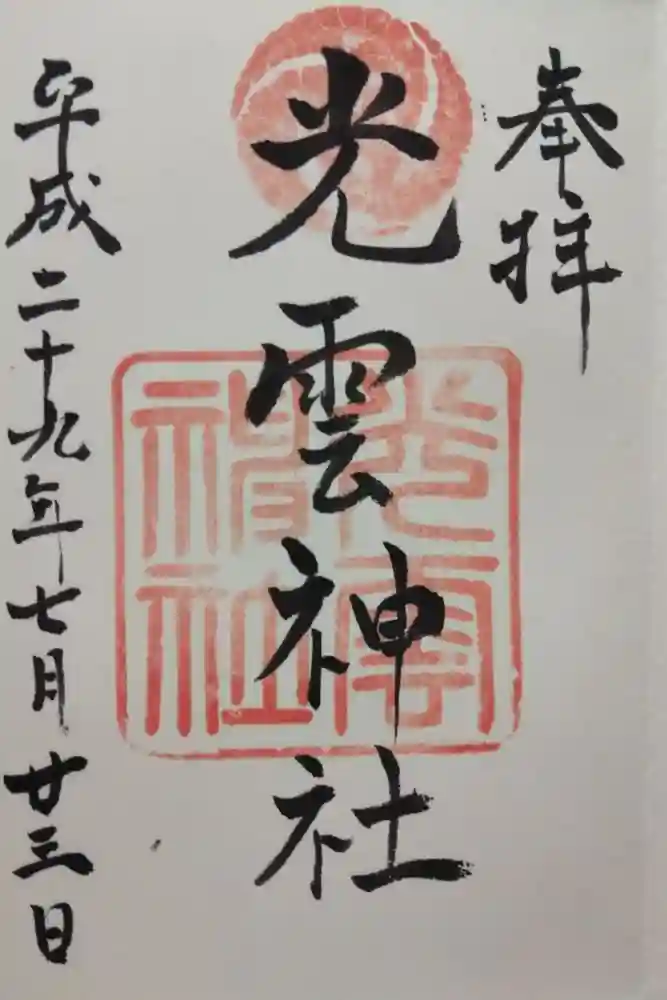 奉拝
光雲神社
光雲神社
平成二十九年七月廿三日